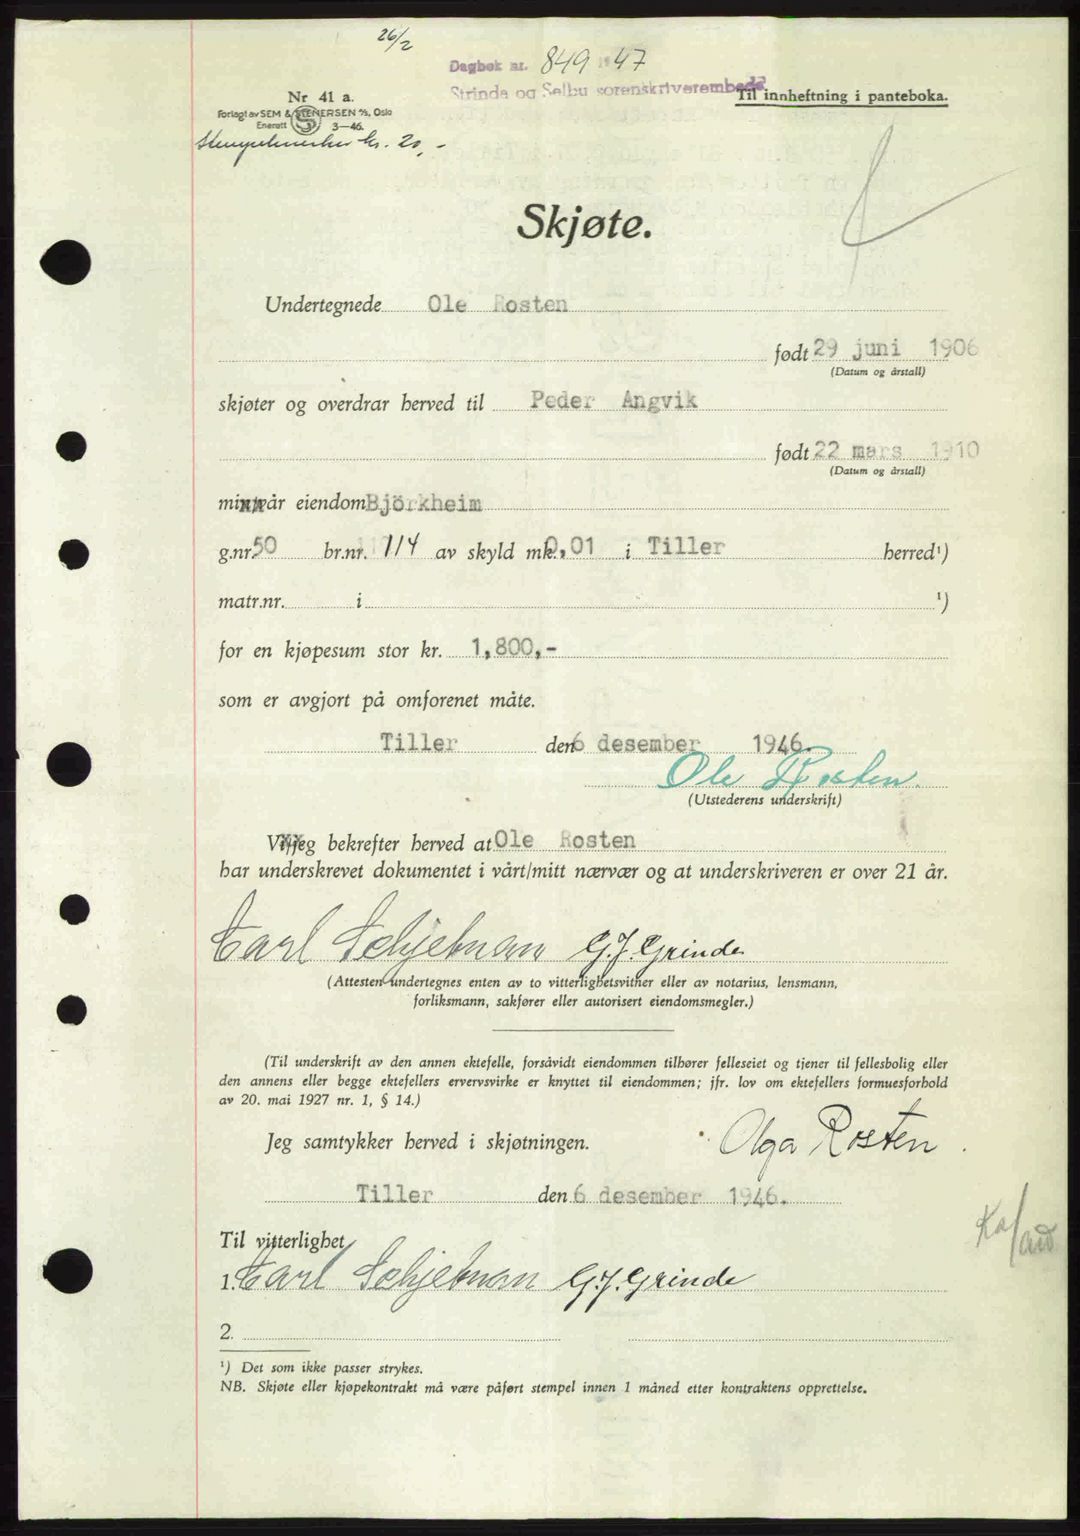 26/2
Dagbok nr. 849 1947
Strinda og Selbu sorenskriverembede
Til innheftning i panteboka.
Nr 41 a.
Forlagt av SEM & STENERSEN A/S, Oslo
Enerett 3—46.
Stempelmerker kr. 20,-
Skjøte.
Undertegnede Ole Rosten
født 29 juni 1906
(Datum og årstall)
skjøter og overdrar herved til Peder Angvik
født 22 mars 1910
(Datum og årstall)
min/vår eiendom Björkheim
g.nr. 50 br.nr. 114 av skyld mk. 0,01 i Tiller herred¹)
matr.nr. i ¹)
for en kjøpesum stor kr. 1,800,-
som er avgjort på omforenet måte.
Tiller den 6 desember 1946.
Ole Rosten.
(Utstederens underskrift)
Vi/jeg bekrefter herved at Ole Rosten
har underskrevet dokumentet i vårt/mitt nærvær og at underskriveren er over 21 år.
Carl Schjetnan G.J. Grinde
(Attesten undertegnes enten av to vitterlighetsvitner eller av notarius, lensmann,
forliksmann, sakfører eller autorisert eiendomsmegler.)
(Til underskrift av den annen ektefelle, forsåvidt eiendommen tilhører felleseiet og tjener til fellesbolig eller
den annens eller begge ektefellers ervervsvirke er knyttet til eiendommen; jfr. lov om ektefellers formuesforhold
av 20. mai 1927 nr. 1, § 14.)
Jeg samtykker herved i skjøtningen. Olga Rosten
Tiller den 6 desember 1946.
Til vitterlighet
1. Carl Schjetnan G.J. Grinde
2.
¹) Det som ikke passer strykes.
NB. Skjøte eller kjøpekontrakt må være påført stempel innen 1 måned etter kontraktens opprettelse.